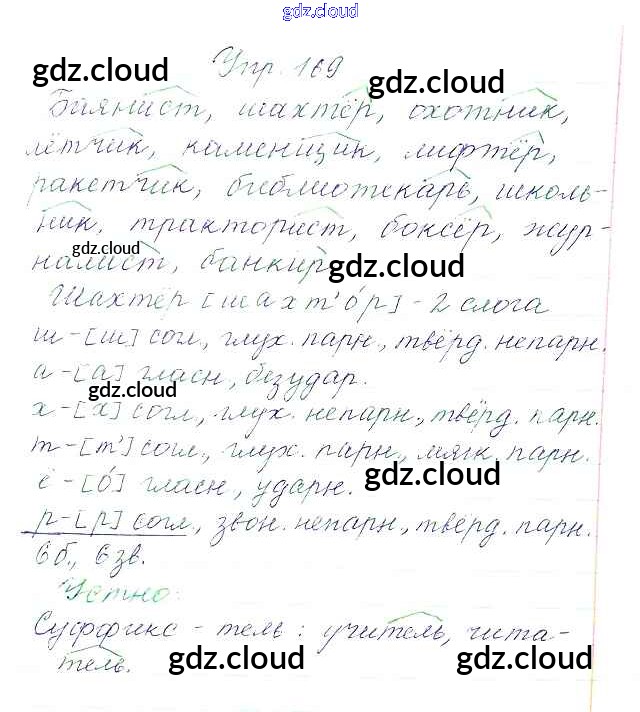 gdz.cloud
Упр. 169
gdz.cloud
gdz.cloud
Баянист, шахтёр, охотник,
лётчик, каменщик, лифтёр,
ракетчик, библиотекарь, школь-
ник, тракторист, боксёр, жур-
gdz.cloud
налист, банкир
gdz.cloud
Шахтёр [шахт'о́р] - 2 слога
ш-[ш] согл., глух. парн., твёрд. непарн.
а-[а] гласн., безудар.
gdz.cloud
х-[х] согл., глух. непарн., твёрд. парн.
т-[т'] согл., глух. парн., мягк. парн.
ё-[о́] гласн., ударн.
gdz.cloud
р-[р] согл., звон. непарн., твёрд. парн.
6 б., 6 зв.
Устно:
Суффикс - тель: учитель, чита-
тель.
gdz.cloud
gdz.cloud